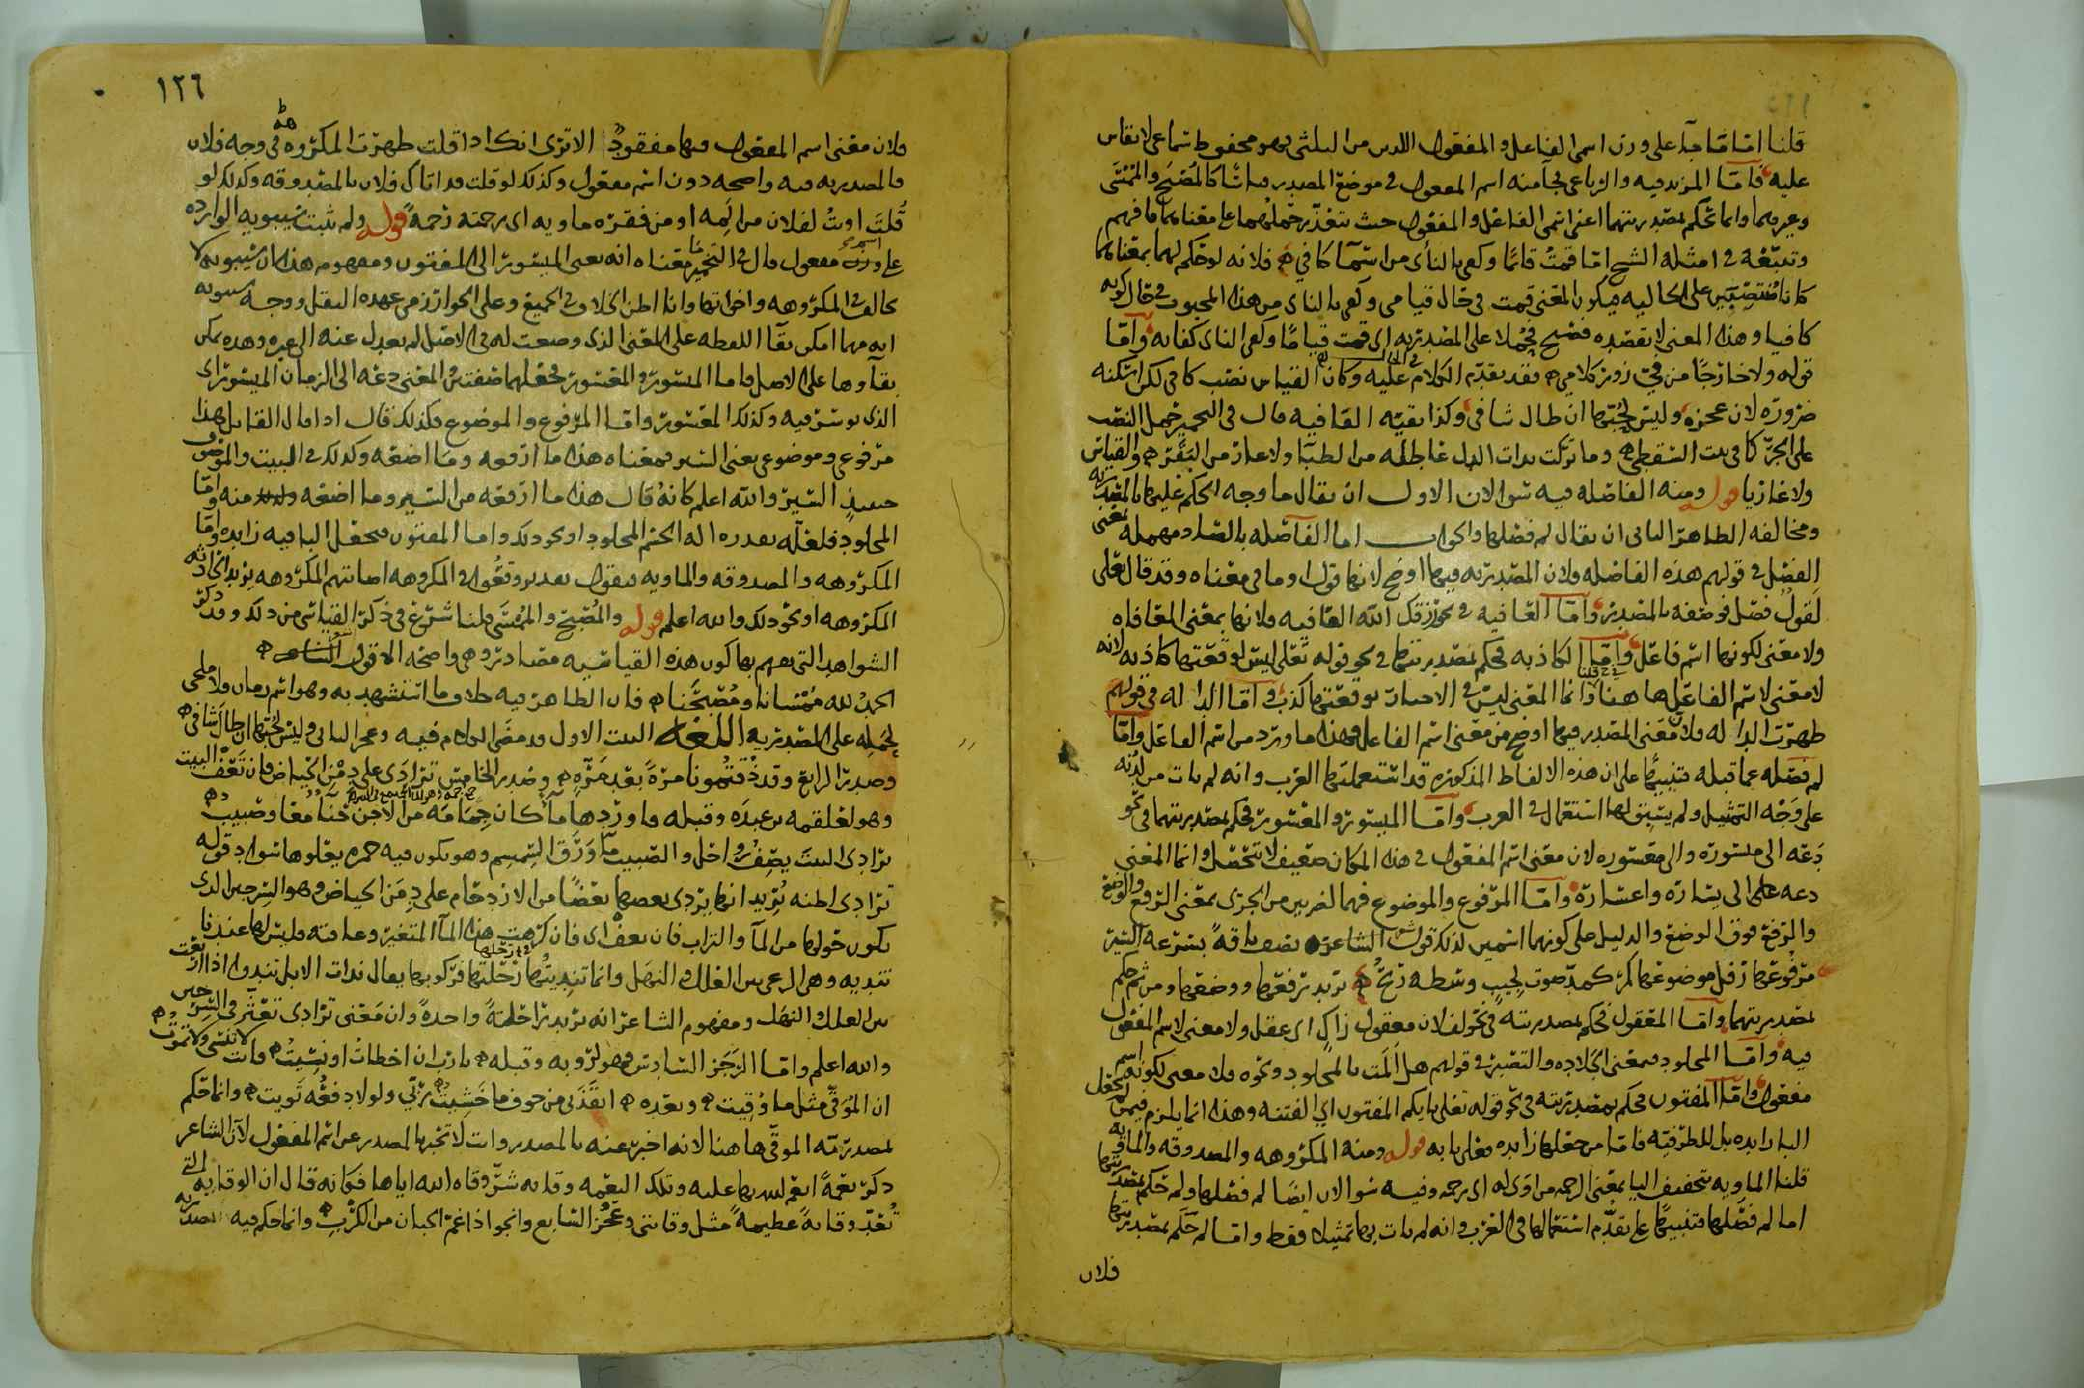 قلنا اما ما جا على وزن اسمي الفاعل والمفعول اللذين من الثلاثي فهو محفوظ سماعي لا يقاس
عليه فاما المزيد فيه والرباعي فجا منه اسم المفعول في موضع المصدر قياسا كالمصبح والممسى
وغيرهما وانما تحكم بمصدريتهما اعني اسمي الفاعل والمفعول حيث يتعذر حملهما على معناهما فافهم
وتتبعه في امثلة الشيخ اما قمت قائما وكفى بالناي من اسما كافي فلانه لو حكم لهما بمعناهما
كانا منتصبين على الحاليه فيكون المعنى قمت في حال قيامي وكفى بالناي من هذه المحبوب في حال كونه
كافيا وهذا المعنى لا يقصده فيصح حملا على المصدريه اي قمت قياما وكفى الناي كفايه واما
قوله ولا خارجا من في زور كلام فقد تقدم الكلام عليه وكان القياس نصب كافي لكن اسكنه
ضروره لان عجزه وليس لحبها ان طال شافي وكذا بقيه القافيه قال في التحمير حمل النصب
على الجر كما في بيت السقط وما تركت بذات الضال عاطلة من الظبا ولا عار من البقر والقياس
ولا عاريا قوله ومنه الفاضله فيه سوالان الاول ان يقال ما وجه الحكم عليها بالمصدريه
ومخالفه الظاهر الثاني ان يقال لم فصلها والجواب اما الفاضله بالضاد مهمله يعني
الفضل في قولهم هذه الفاضله فلان المصدريه فيها اوضح لانها قول او ما في معناه وقد قال تعلى
لقول فصل فوصفه بالمصدر واما العافيه في نحو رزقك الله العافيه فلانها بمعنى المعافاه
ولا معنى لكونها اسم فاعل واما الكاذبه فحكم بمصدريتها في نحو قوله تعلى ليس لوقعتها كاذبه لانه
لا معنى لاسم الفاعل ها هنا وانما المعنى ليس في الاخبار بوقعتها كذب واما الداله في قولهم
ظهرت الداله فلان معنى المصدر فيها اوضح من معنى اسم الفاعل فهذا ما ورد من اسم الفاعل واما
لم فصله عما قبله فتنبيها على ان هذه الالفاظ المذكوره قد استعملتها العرب وانه لم يات من لدنه
على وجه التمثيل ولم يسبق لها استعمال في العرب واما الميسور والمعسور فحكم بمصدريتهما في نحو
دعه الى ميسوره والى معسوره لان معنى اسم المفعول في هذا المكان ضعيف لا يتحصل وانما المعنى
دعه الى يساره واعساره واما المرفوع والموضوع فهما لضربين من الجري بمعنى الرفع والوضع
والرفع فوق الوضع والدليل على كونهما اسمين لذلك قول الشاعر يصف ناقه بسرعه السير
مرفوعها زول وموضوعها كمر صوت لجب وسطه ريح يريد ترفعها ووضعها ومن ثم حكم
بمصدريتهما واما المعقول فحكم بمصدريته في نحو لفلان معقول زاك اي عقل ولا معنى لاسم المفعول
فيه واما المجلود فبمعنى الجلاده والتصبر في قولهم هل الممت بالمجلود ونحوه ولا معنى لكونه اسم
مفعول واما المفتون فحكم بمصدريته في نحو قوله تعلى بايكم المفتون اي الفتنه وهذا انما يلزم فيمن لم يجعل
البا زايده بل للظرفيه فاما من جعلها زايده فعلى بابه قوله ومنه المكروهه والمصدوقه والماويه
قلنا الماويه بتخفيف اليا بمعنى الرحمه من اوى له اي رحمه وفيه سوالان ايضا لم فصلها ولم حكم بمصدريتها
اما لم فصلها فتنبيها على تقدم استعمالها في العرب وانه لم يات بها تمثيلا فقط واما لم حكم بمصدريتها
فلان
١٢٦
فلان معنى اسم المفعول فيها مفقود الا ترى انك اذا قلت ظهرت المكروهه في وجه فلان
فالمصدريه فيه واضحه دون اسم مفعول وكذلك لو قلت قد اتاك فلان بالمصدوقه وكذلك لو
قلت اويت لفلان من المه او من فقره ماويه اي رحمته رحمة قوله ولم يثبت سيبويه الوارد
على وزن مفعول قال في التحمير معناه انه يعني الميسور الى المفتون ومفهومه هذا ان سيبويه لا
يخالف في المكروهه واخواتها وانا اظن الخلاف في الجميع وعلى الخوارزمي عهده النقل ووجه سيبويه
انه مهما امكن بقا اللفظه على المعنى الذي وضعت له في الاصل لم يعدل عنه الى غيره وهذه يمكن
بقاوها على الاصل فاما الميسور والمعسور فجعلهما صفتين والمعنى دعه الى الزمان الميسور اي
الذي يوسر فيه وكذلك المعسور واما المرفوع والموضوع فكذلك قال اذا قال القايل هذا
مرفوعي وموضوعي يعني السير فمعناه هذا ما ارفعه وما اضعه وكذلك في البيت والموصوف
حينيذ السير والله اعلم كانه قال هذا ما ارفعه من السير وما اضعه منه واما
المجلود فلعله يقدره اله الجسم المجلود او نحو ذلك واما المفتون فيجعل البا فيه زايده واما
المكروهه والمصدوقه والماويه فيقول تقدير وقعوا في المكروهه اصابتهم المكروهه يريد الحادثه
المكروهه او نحو ذلك والله اعلم قوله والمصبح والممسى قلنا شرع في ذكر القياس من ذلك وقد ذكر
الشواهد التي يفهم بها كون هذه القياسيه مصادر وهي واضحه الا قول الشاعر
الحمد لله ممسانا ومصبحنا فان الظاهر فيه خلاف ما استشهد به وهو اسم زمان ولا ملجى
لحمله على المصدريه اللغه البيت الاول قد مضى الكلام فيه وعجز الثاني وليس لحبها ان طال شافي
وصدر الرابع وقد ذقتمونا مرة بعد مرة وصدر الخامس ترادى على دمن الحياض فان تعف البيت
وهو لعلقمه بن عبده وقبله فاوردها ما كان جمامه من الاجن حنا معا وصبيب
ترادى البيت يصف رواحل والصبيب ما ورق السمسم وهو يكون فيه حمره يعلوها سواد قوله
ترادى اظنه يريد انها يردي بعضها بعضا من الازدحام على دمن الحياض وهو السرجين الذي
يكون حولها من الما والتراب فان تعف اي فان كرهت هذا الما المتغير وعافته فليس لها عندنا
تنديه وهي الرعي بين العلل والنهل وانما تنديتها رحلتها فركوبها يقال ندت الابل تندوا اذا رعت
بين العلل والنهل ومفهوم الشاعر انه يريد تراحلها مرة واحدة وان معنى ترادى تعترى والسرحين
والله اعلم واما الرجز السادس فهو لرؤبه وقبله يا رب ان اخطات او نسيت فانت لا تنسى ولا تموت
ان الموقى مثل ما وقيت وبعده انقذني من خوف ما خشيت ربي ولولا دفعه ثويت وانما حكم
بمصدريه الموقى ها هنا لانه اخبر عنه بالمصدر وانت لا تخبر بالمصدر عن اسم المفعول لان الشاعر
ذكر نعمة انعم الله بها عليه وتلك النعمه وقايه شر وقاه الله اياها فكانه قال ان الوقايه التي
تعد وقاية عظيمة مثل وقايتي وعجز السابع وانجوا اذا غم الجبان من الكرب وانما حكم فيه